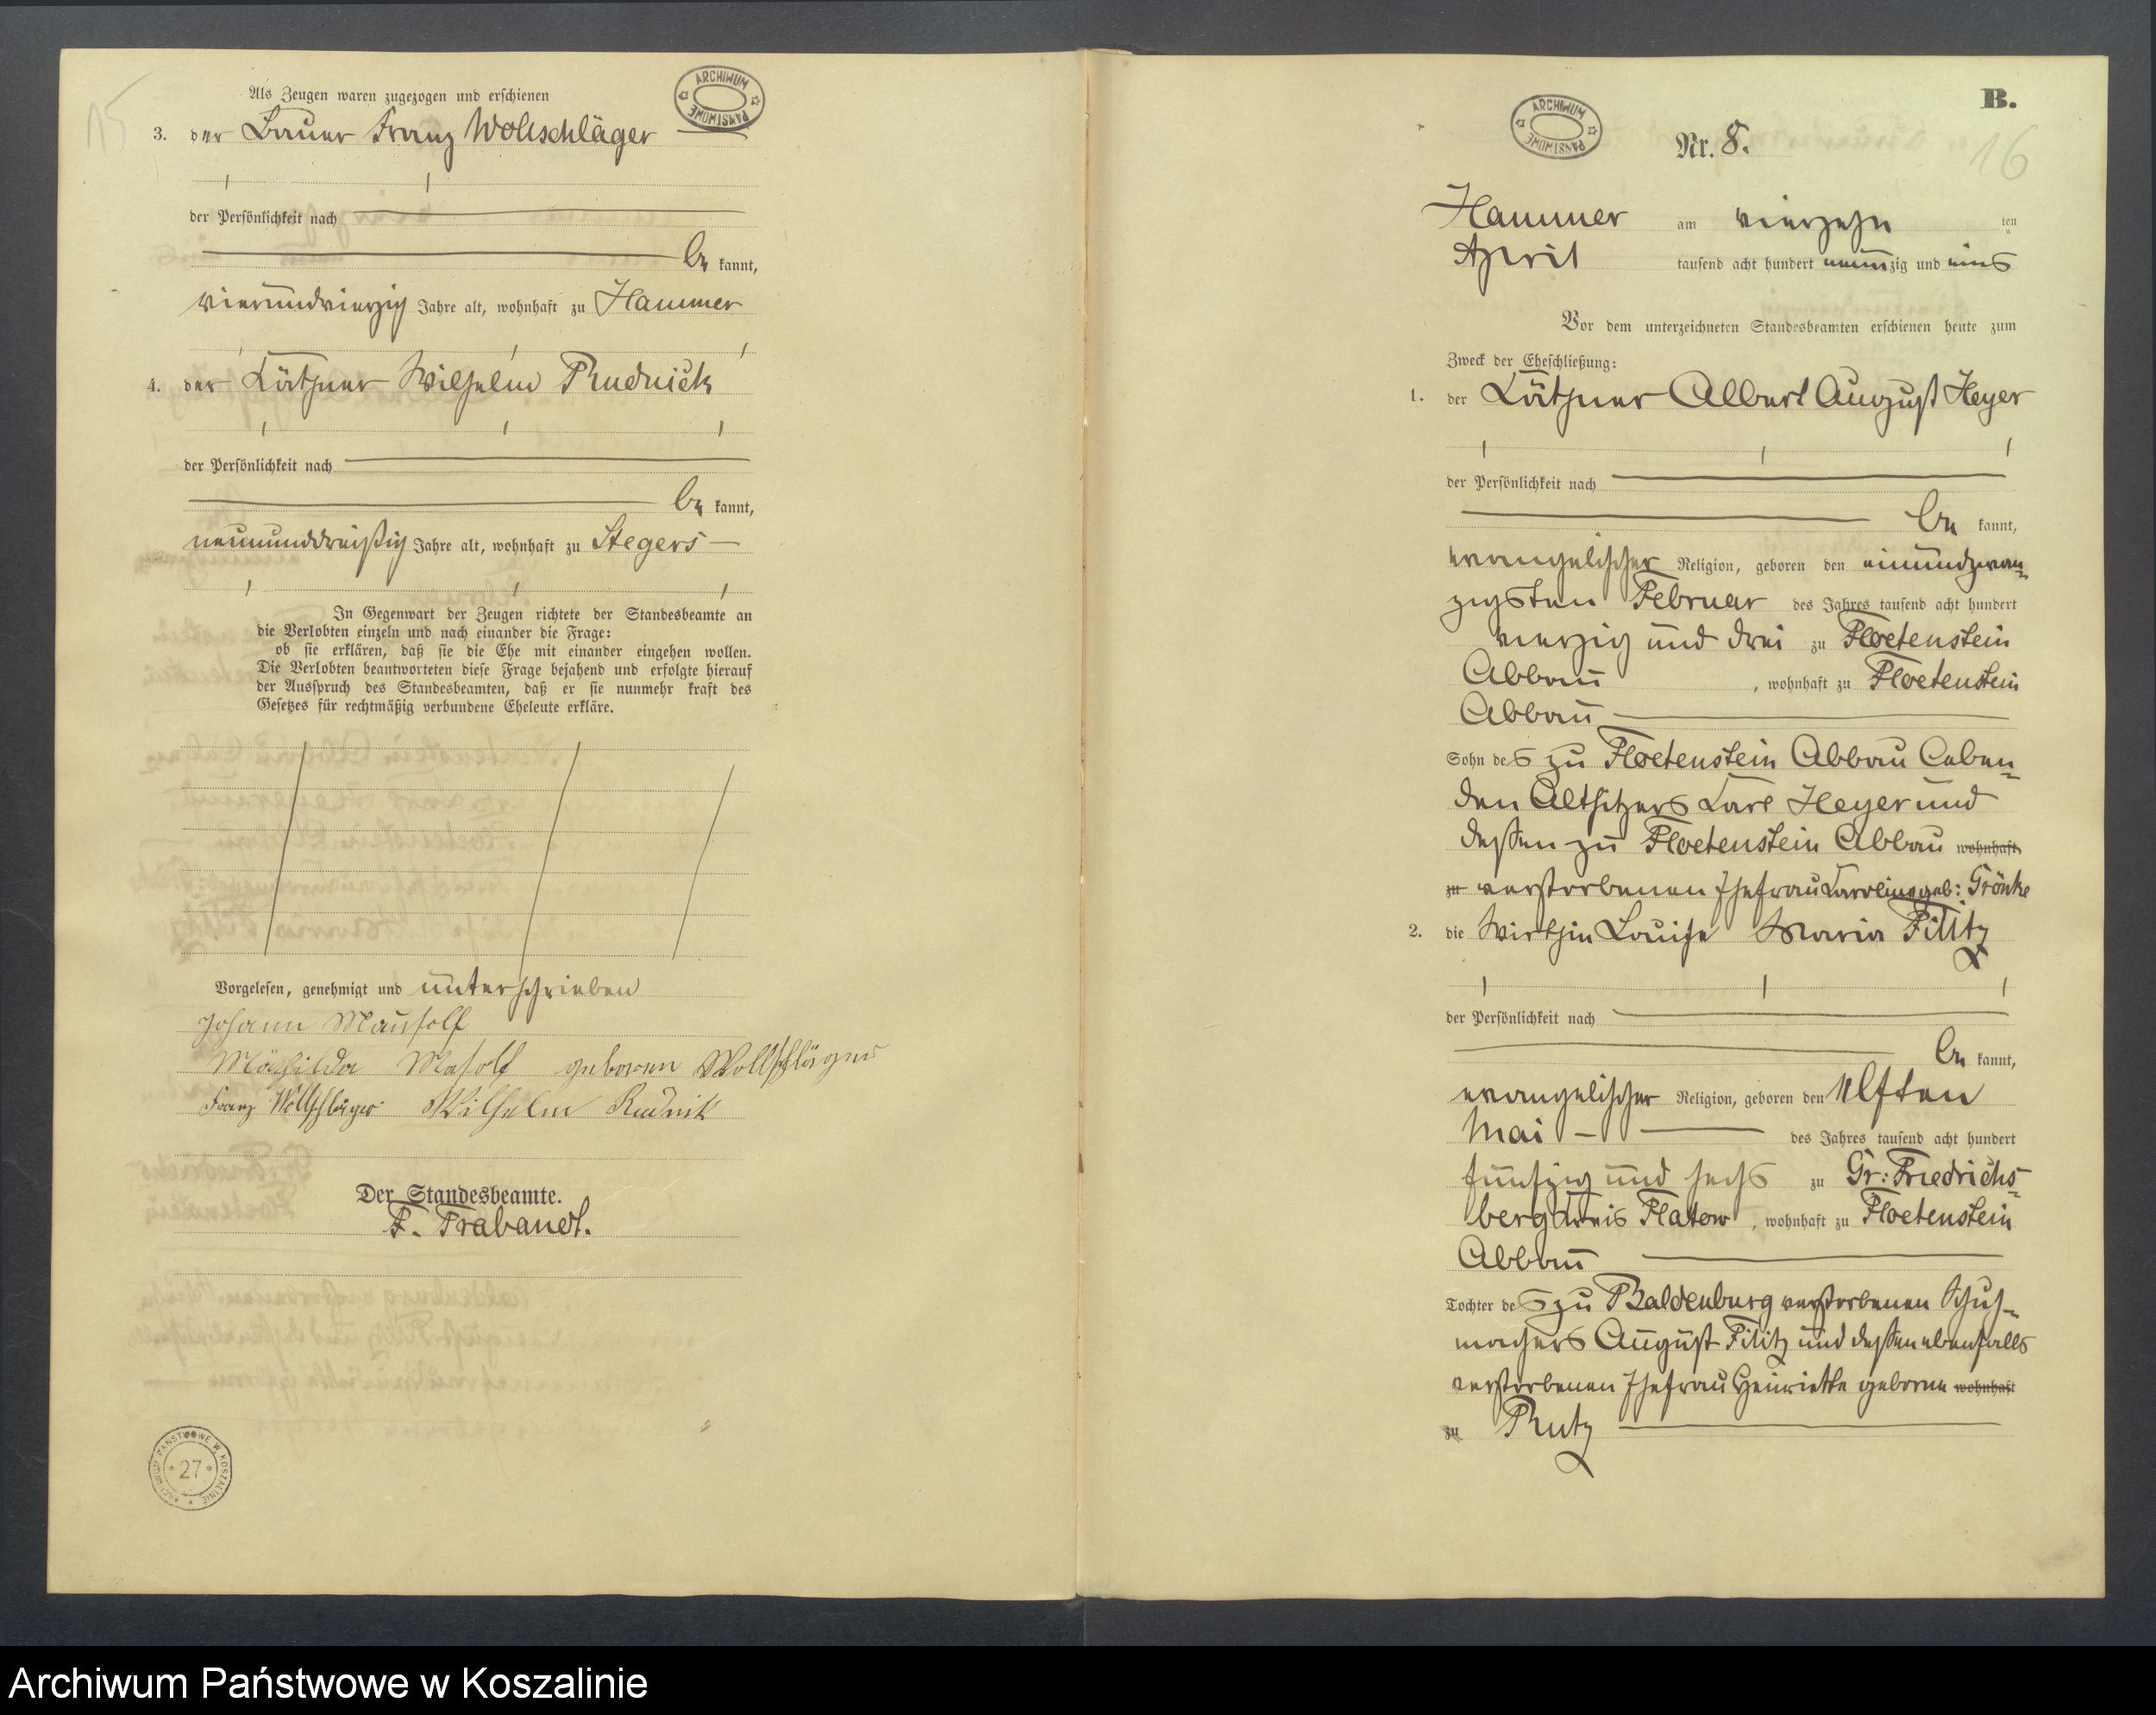 15
Als Zeugen waren zugezogen und erschienen
ARCHIWUM PAŃSTWOWE
3. der Bauer Franz Wollschläger
der Persönlichkeit nach
be kannt,
vierundvierzig Jahre alt, wohnhaft zu Hammer
4. der Käthner Wilhelm Rudnick
der Persönlichkeit nach
be kannt,
neununddreißig Jahre alt, wohnhaft zu Stegers
In Gegenwart der Zeugen richtete der Standesbeamte an
die Verlobten einzeln und nach einander die Frage:
ob sie erklären, daß sie die Ehe mit einander eingehen wollen.
Die Verlobten beantworteten diese Frage bejahend und erfolgte hierauf
der Ausspruch des Standesbeamten, daß er sie nunmehr kraft des
Gesetzes für rechtmäßig verbundene Eheleute erkläre.
Vorgelesen, genehmigt und unterschrieben
Johann Mausolf
Mathilda Masolf geboren Wollschläger
Franz Wollschläger Wilhelm Rudnik
Der Standesbeamte.
F. Trabandt.
ARCHIWUM PAŃSTWOWE W KOSZALINIE
* 27 *
B.
16
ARCHIWUM PAŃSTWOWE
Nr. 8.
Hammer am vierzehn ten
April tausend acht hundert neunzig und eins
Vor dem unterzeichneten Standesbeamten erschienen heute zum
Zweck der Eheschließung:
1. der Käthner Albert August Heyer
der Persönlichkeit nach
be kannt,
evangelischer Religion, geboren den einundzwan-
zigsten Februar des Jahres tausend acht hundert
vierzig und drei zu Floetenstein
Abbau, wohnhaft zu Floetenstein
Abbau
Sohn des zu Floetenstein Abbau leben-
den Altsitzers Karl Heyer und
dessen zu Floetenstein Abbau wohnhaft
zu verstorbenen Ehefrau Karoline geb: Grönke
2. die Wirthin Louise Maria Filitz
der Persönlichkeit nach
be kannt,
evangelischer Religion, geboren den elften
Mai des Jahres tausend acht hundert
fünfzig und sechs zu Gr: Friedrichs-
berg Kreis Flatow, wohnhaft zu Floetenstein
Abbau
Tochter des zu Baldenburg verstorbenen Schuh-
machers August Filitz und dessen ebenfalls
verstorbenen Ehefrau Henriette geborne wohnhaft
zu Rutz
Archiwum Państwowe w Koszalinie